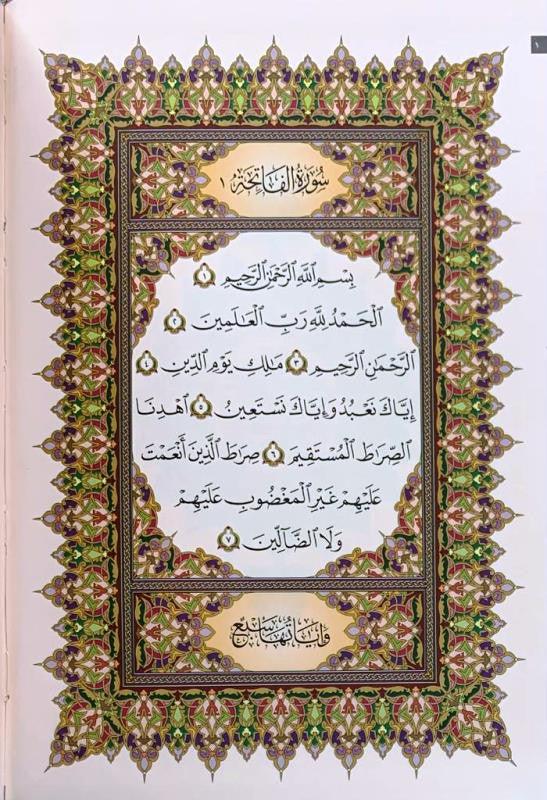 ١
سُورَةُ الفَاتِحَةِ ١
بِسْمِ اللَّهِ الرَّحْمَٰنِ الرَّحِيمِ ١
الْحَمْدُ لِلَّهِ رَبِّ الْعَالَمِينَ ٢
الرَّحْمَٰنِ الرَّحِيمِ ٣ مَالِكِ يَوْمِ الدِّينِ ٤
إِيَّاكَ نَعْبُدُ وَإِيَّاكَ نَسْتَعِينُ ٥ اهْدِنَا
الصِّرَاطَ الْمُسْتَقِيمَ ٦ صِرَاطَ الَّذِينَ أَنْعَمْتَ
عَلَيْهِمْ غَيْرِ الْمَغْضُوبِ عَلَيْهِمْ
وَلَا الضَّالِّينَ ٧
وَآيَاتُهَا سَبْعٌ